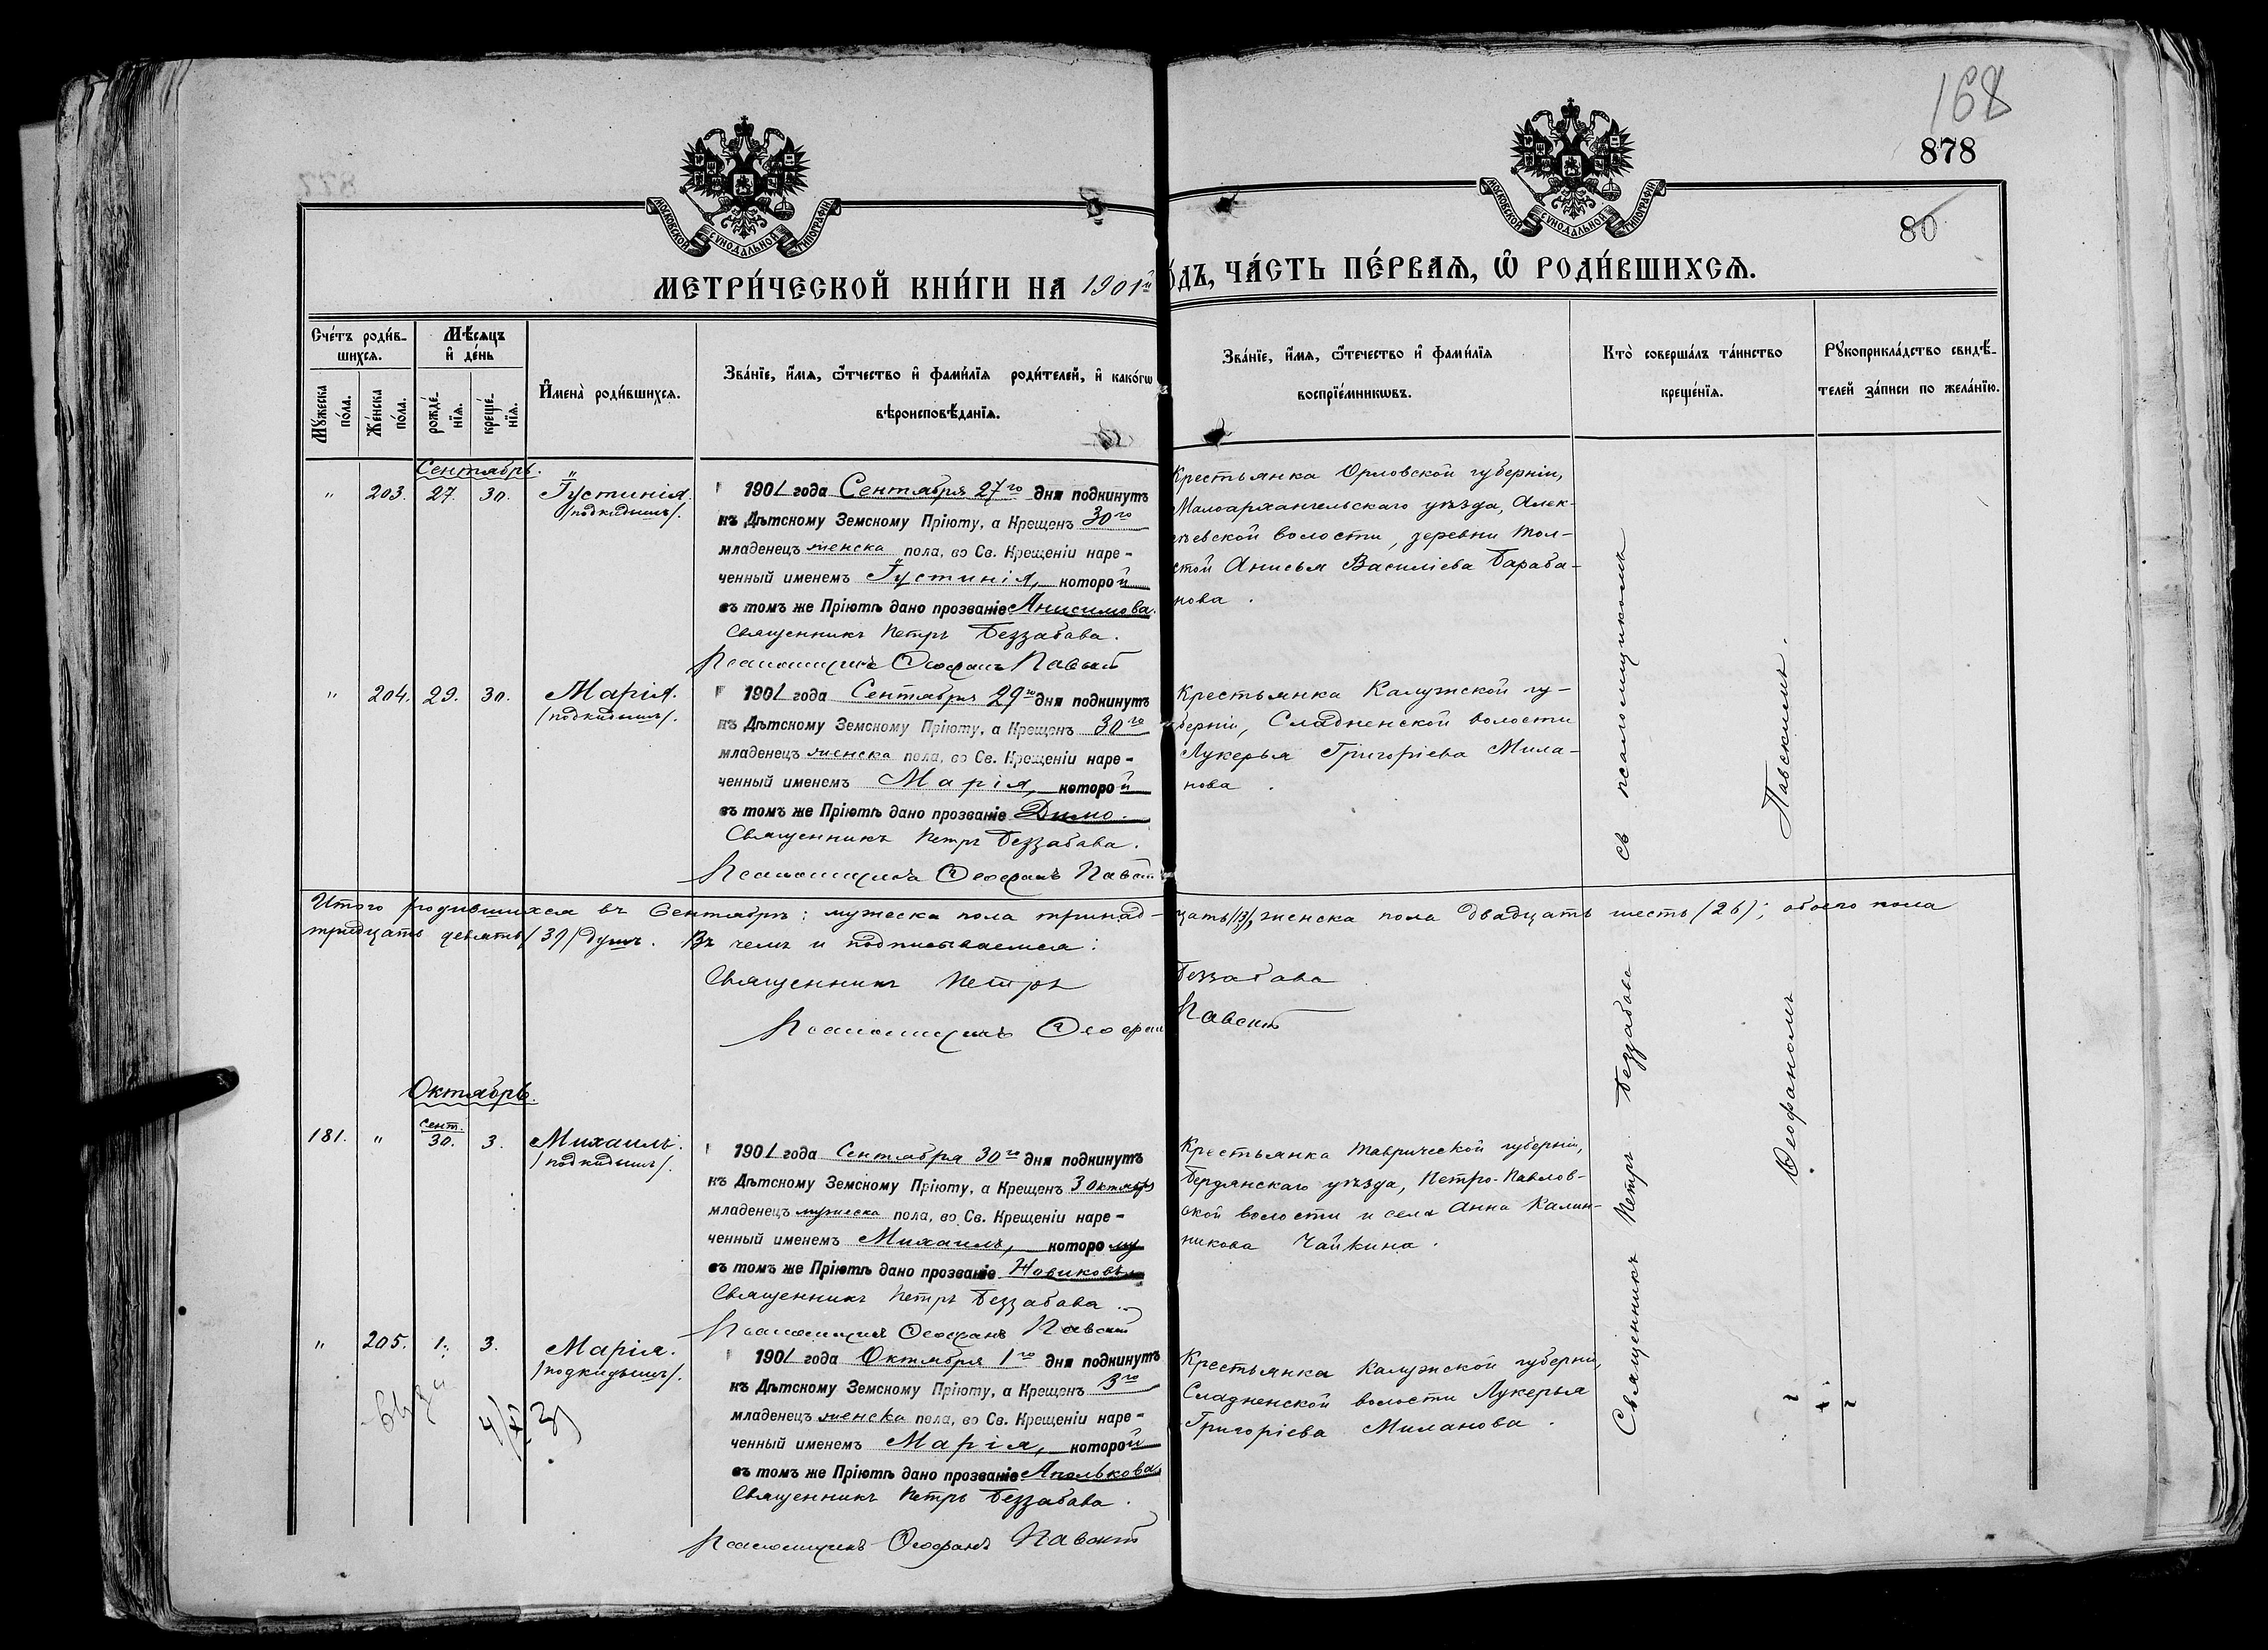 168
878
80
МОСКОВСКОЙ СѴНОДАЛЬНОЙ ТИПОГРАФІИ
МОСКОВСКОЙ СѴНОДАЛЬНОЙ ТИПОГРАФІИ
МЕТРИ́ЧЕСКОЙ КНИ́ГИ НА 1901й
О́ДЪ, ЧА́СТЬ ПЕ́РВАѦ, Ѡ РОДИ́ВШИХСѦ.
Сче́тъ роди́в-
шихсѧ.
Мѣ́сѧцъ
и҆ де́нь
Мꙋ́жеска
по́ла.
Же́нска
по́ла.
рожде́-
нїѧ.
креще́-
нїѧ.
И҆мена̀ роди́вшихсѧ.
Зва́нїе, и҆́мѧ, ѻ҆́тчество и҆ фами́лїѧ роди́телей, и҆ како́гѡ
вѣроисповѣ́данїѧ.
Зва́нїе, и҆́мѧ, ѻ҆те́чество и҆ фами́лїѧ
воспрїе́мникѡвъ.
Кто̀ соверша́лъ та́инство
креще́нїѧ.
Рꙋкоприкла́дство свидѣ́-
телей за́писи по жела́нїю.
Сентябрь.
" 203. 27. 30. Іустинія.
/подкидышъ/.
1901 года Сентября 27го дня подкинутъ
къ Дѣтскому Земскому Пріюту, а Крещенъ 30го
младенецъ женска пола, во Св. Крещеніи наре-
ченный именемъ Іустинія, которой
въ томъ же Пріютѣ дано прозваніе Анисимова.
Священникъ Петръ Беззабава.
Псаломщикъ Ѳеофанъ Павскій
Крестьянка Орловской губерніи,
Малоархангельскаго уѣзда, Алек-
сѣевской волости, деревни Тол-
стой Анисья Василіева Бараба-
нова.
" 204. 29. 30. Марія.
/подкидышъ/.
1901 года Сентября 29го дня подкинутъ
къ Дѣтскому Земскому Пріюту, а Крещенъ 30го
младенецъ женска пола, во Св. Крещеніи наре-
ченный именемъ Марія, которой
въ томъ же Пріютѣ дано прозваніе Димо.
Священникъ Петръ Беззабава.
Псаломщикъ Ѳеофанъ Павскій
Крестьянка Калужской гу-
берніи, Сладненской волости
Лукерья Григоріева Мила-
нова.
Итого родившихся въ Сентябрѣ: мужеска пола тринад-цать/13/, женска пола двадцать шесть/26/; обоего пола
тридцать девять/39/душъ. Въ чемъ и подписываемся:
Священникъ Петръ Беззабава
Псаломщикъ Ѳеофанъ Павскій
Октябрь.
181. " сент. 30. 3. Михаилъ.
/подкидышъ/.
1901 года Сентября 30го дня подкинутъ
къ Дѣтскому Земскому Пріюту, а Крещенъ 3 Октября
младенецъ мужеска пола, во Св. Крещеніи наре-
ченный именемъ Михаилъ, которому
въ томъ же Пріютѣ дано прозваніе Новиковъ
Священникъ Петръ Беззабава.
Псаломщикъ Ѳеофанъ Павскій
Крестьянка Таврической губерніи,
Бердянскаго уѣзда, Петро-Павлов-
ской волости и села Анна Калин-
никова Чайкина.
" 205. 1. 3. Марія.
/подкидышъ/.
1901 года Октября 1го дня подкинутъ
къ Дѣтскому Земскому Пріюту, а Крещенъ 3го
младенецъ женска пола, во Св. Крещеніи наре-
ченный именемъ Марія, которой
въ томъ же Пріютѣ дано прозваніе Апалькова
Священникъ Петръ Беззабава.
Псаломщикъ Ѳеофанъ Павскій
Крестьянка Калужской губерніи,
Сладненской волости Лукерья
Григоріева Миланова.
Священникъ Петръ Беззабава съ псаломщикомъ
Ѳеофаномъ Павскимъ.